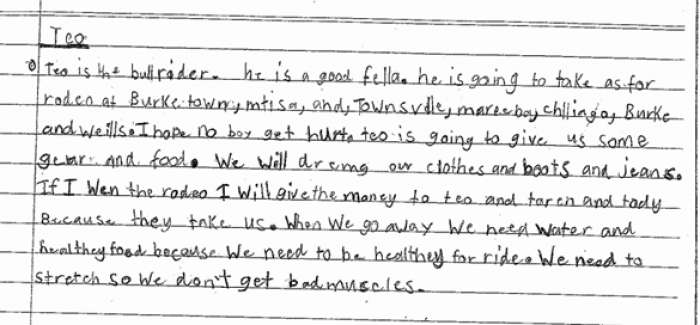 Teo
Teo is the bullrider. he is a good fella. he is going to take as for
rodeo at Burke.town, mtisa, and, Townsville, mareebay chllingo, Burke
and weills. I hope no boy get hurt. teo is going to give us some
gear. and food. We Will our clothes and boots and jeans.
If I Wen the rodeo I will give the money to teo and taren and tody
Because they take us. When We go away We need water and
healthey food because We need to be healthey for ride. We need to
stretch so We don't get bad muscles.